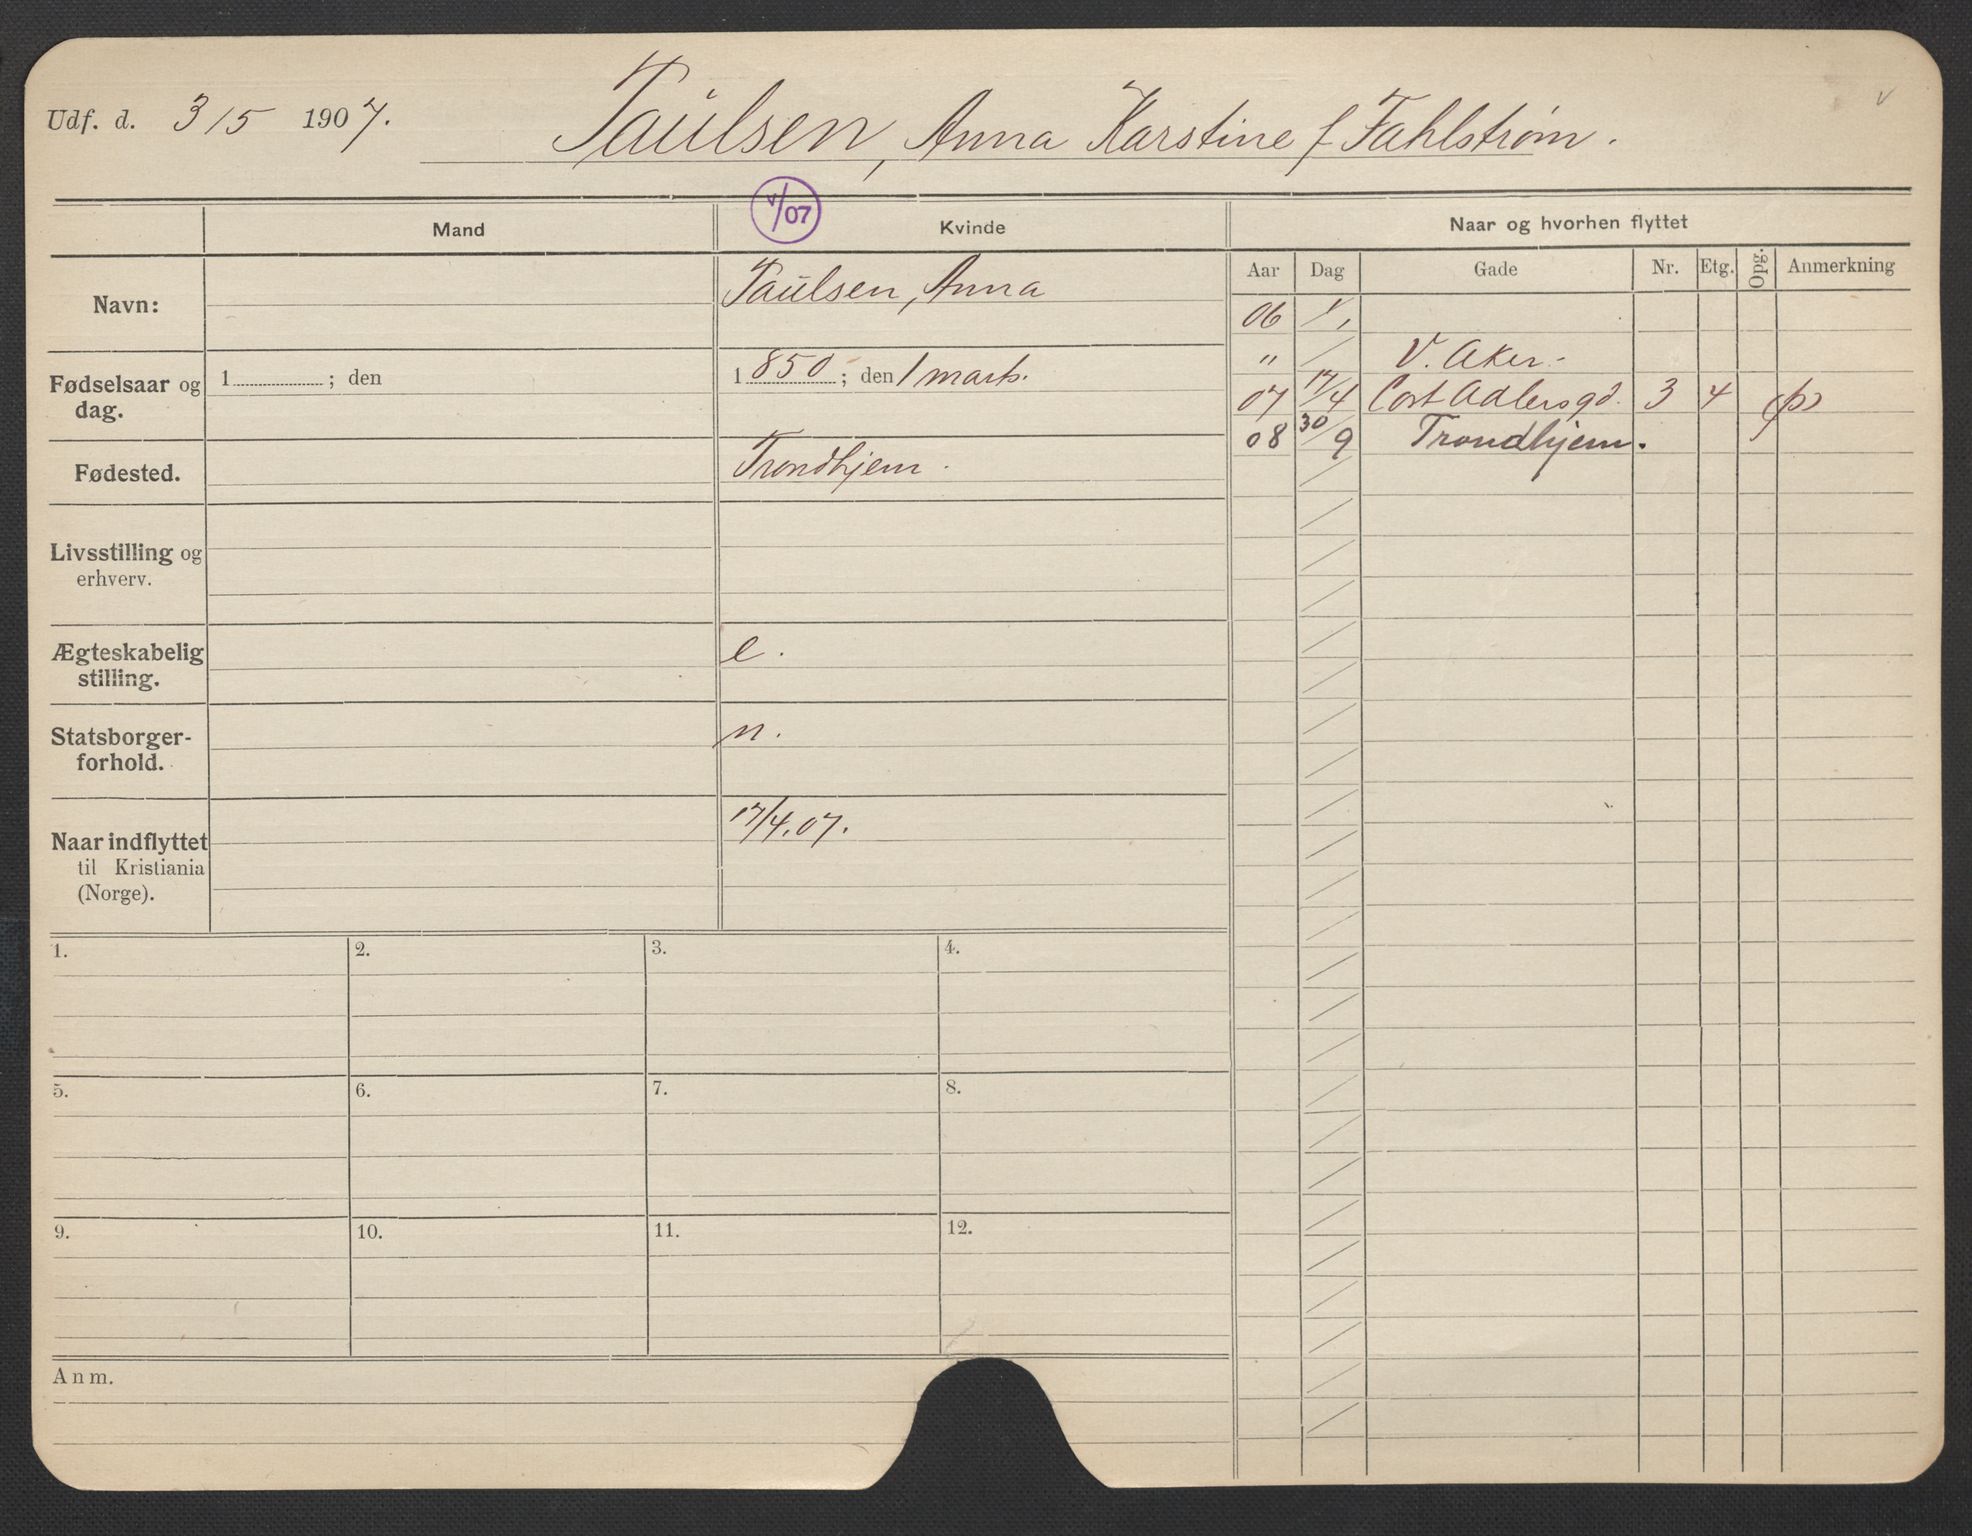 Udf. d. 3/5 1907. Paulsen, Anna Karstine f Fahlstrøm.
V/07
Mand Kvinde Naar og hvorhen flyttet
Aar Dag Gade Nr. Etg. Opg. Anmerkning
Navn: Paulsen, Anna
06 1/1
Fødselsaar og dag. 1 ; den 1850 ; den 1 marts.
" / V. Aker.
07 17/4 Cort Adlersgd. 3 4 (p)
08 30/9 Trondhjem.
Fødested. Trondhjem.
Livsstilling og
erhverv.
Ægteskabelig e.
stilling.
Statsborger- n.
forhold.
Naar indflyttet 17/4.07.
til Kristiania
(Norge).
1. 2. 3. 4.
5. 6. 7. 8.
9. 10. 11. 12.
Anm.